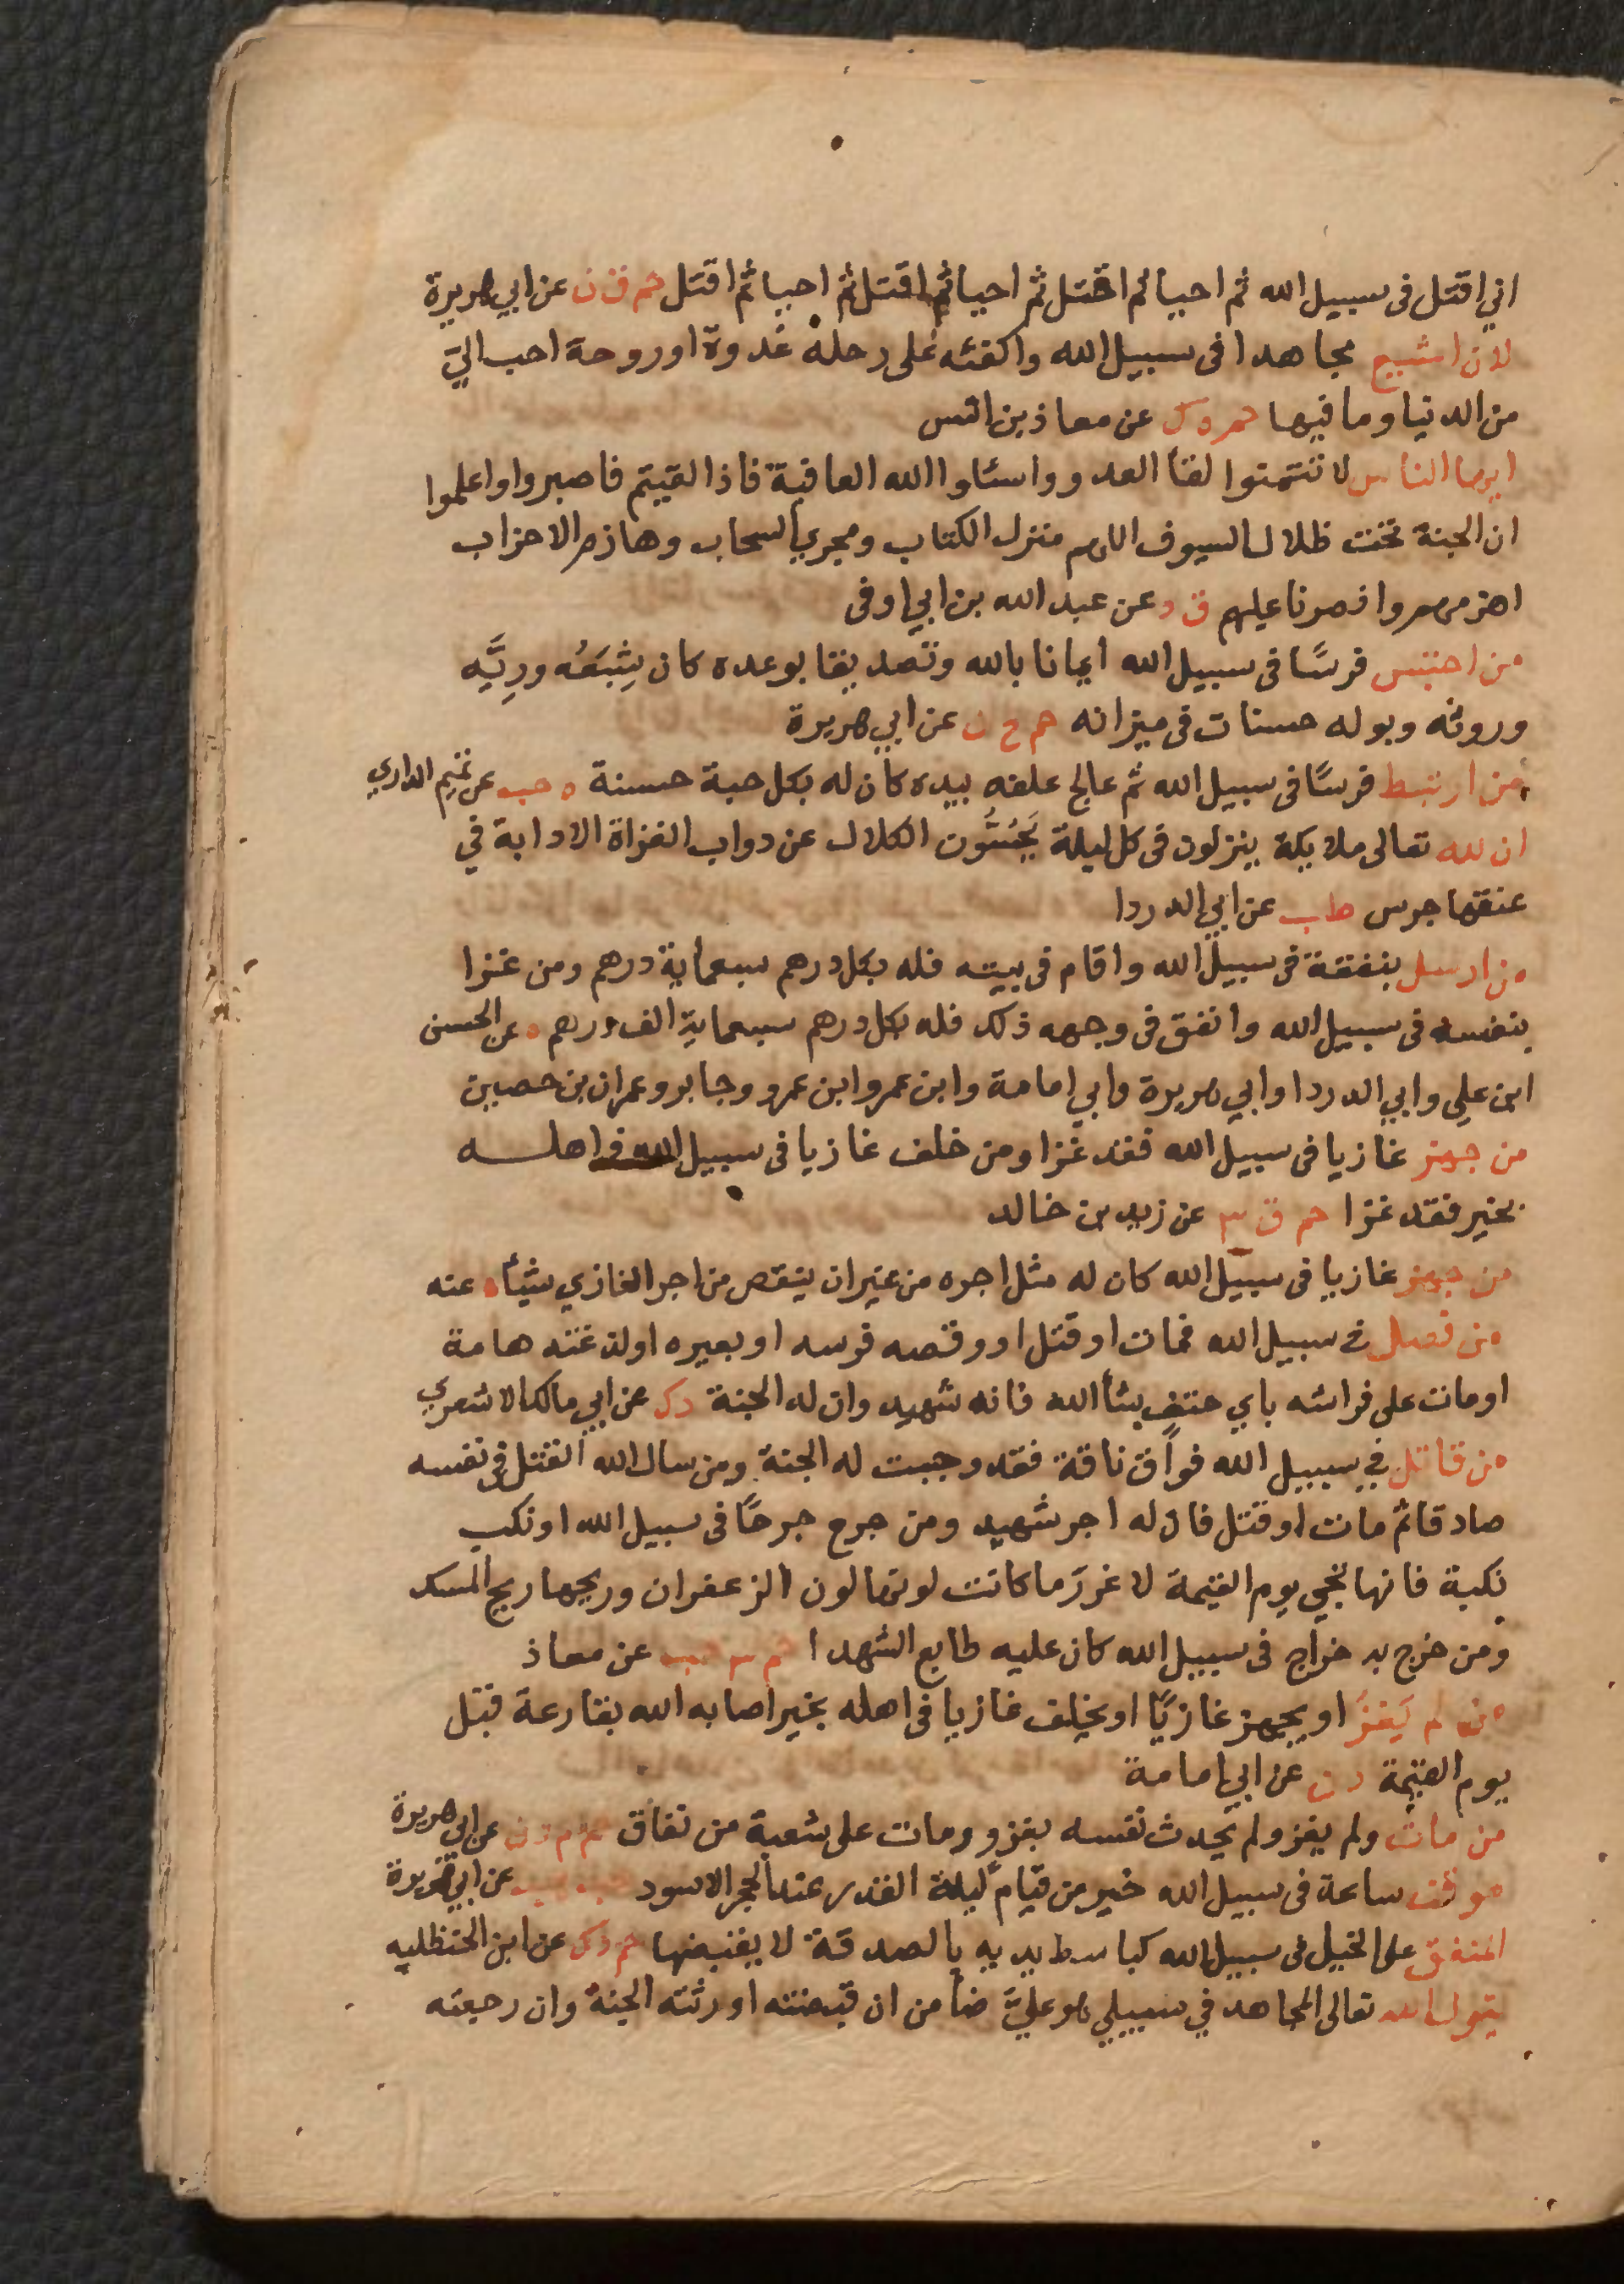 اني اقتل فى سبيل الله ثم احيا ثم اقتل ثم احيا ثم اقتل ثم احيا ثم اقتل حم ق ن عن ابي هريرة
لان اشيع مجاهدا فى سبيل الله واكفئه على رحله غدوة او روحة احب اليّ
من الدنيا وما فيها حم ه ك عن معاذ بن انس
ايها الناس لا تتمنوا لقأ العدو واسئلوا الله العافية فاذا لقيتم فاصبروا واعلموا
ان الجنة تحت ظلال السيوف اللهم منزل الكتاب ومجري السحاب وهازم الاحزاب
اهزمهم وانصرنا عليهم ق د عن عبد الله بن ابي اوفى
من احتبس فرسًا فى سبيل الله ايمانا بالله وتصديقا بوعده كان شِبَعُه وريَّه
وروثه وبوله حسنات فى ميزانه حم خ ن عن ابي هريرة
من ارتبط فرسًا فى سبيل الله ثم عالج علفه بيده كان له بكل حبة حسنة ه حب عن تميم الداري
ان لله تعالى ملايكة ينزلون فى كل ليلة يَحُسُّون الكلال عن دواب الغزاة الا دابة في
عنقها جرس طب عن ابي الدردا
من ارسل بنفقة فى سبيل الله واقام فى بيته فله بكل درهم سبعماية درهم ومن غزا
بنفسه فى سبيل الله وانفق فى وجهه ذلك فله بكل درهم سبعماية الف درهم ه عن الحسن
ابن علي وابي الدردا وابي هريرة وابي امامة وابن عمر وابن عمرو وجابر وعمران بن حصين
من جهز غازيا فى سبيل الله فقد غزا ومن خلف غازيا فى سبيل الله فى اهله
بخير فقد غزا حم ق ٣ عن زيد بن خالد
من جهز غازيا فى سبيل الله كان له مثل اجره من غير ان ينقص من اجر الغازي شيأ ه عنه
من فصل في سبيل الله فمات او قتل او وقصه فرسه او بعيره او لدغته هامة
او مات على فراشه باي حتف شأ الله فانه شهيد وان له الجنة د ك عن ابي مالك الاشعري
من قاتل في سبيل الله فواق ناقة فقد وجبت له الجنة ومن سال الله القتل فى نفسه
صادقا ثم مات او قتل فان له اجر شهيد ومن جرح جرحًا فى سبيل الله او نكب
نكبة فانها تجي يوم القيمة لاغرز ما كانت لونها لون الزعفران وريحها ريح المسك
ومن خرج به خراج فى سبيل الله كان عليه طابع الشهدا حم ٣ حب عن معاذ
من لم يَغزُ او يجهز غازيًا او يخلف غازيا فى اهله بخير اصابه الله بقارعة قبل
يوم القيمة د ن عن ابي امامة
من مات ولم يغز ولم يحدث نفسه بغزو ومات على شعبة من نفاق حم م د ن عن ابي هريرة
موقف ساعة فى سبيل الله خير من قيام ليلة القدر عند الحجر الاسود حب هب عن ابي هريرة
المنفق على الخيل فى سبيل الله كباسط يديه بالصدقة لا يقبضها حم د ك عن ابن الحنظليه
يقول الله تعالى المجاهد في سبيلي هو عليّ ضامن ان قبضته اورثته الجنة وان رجعته